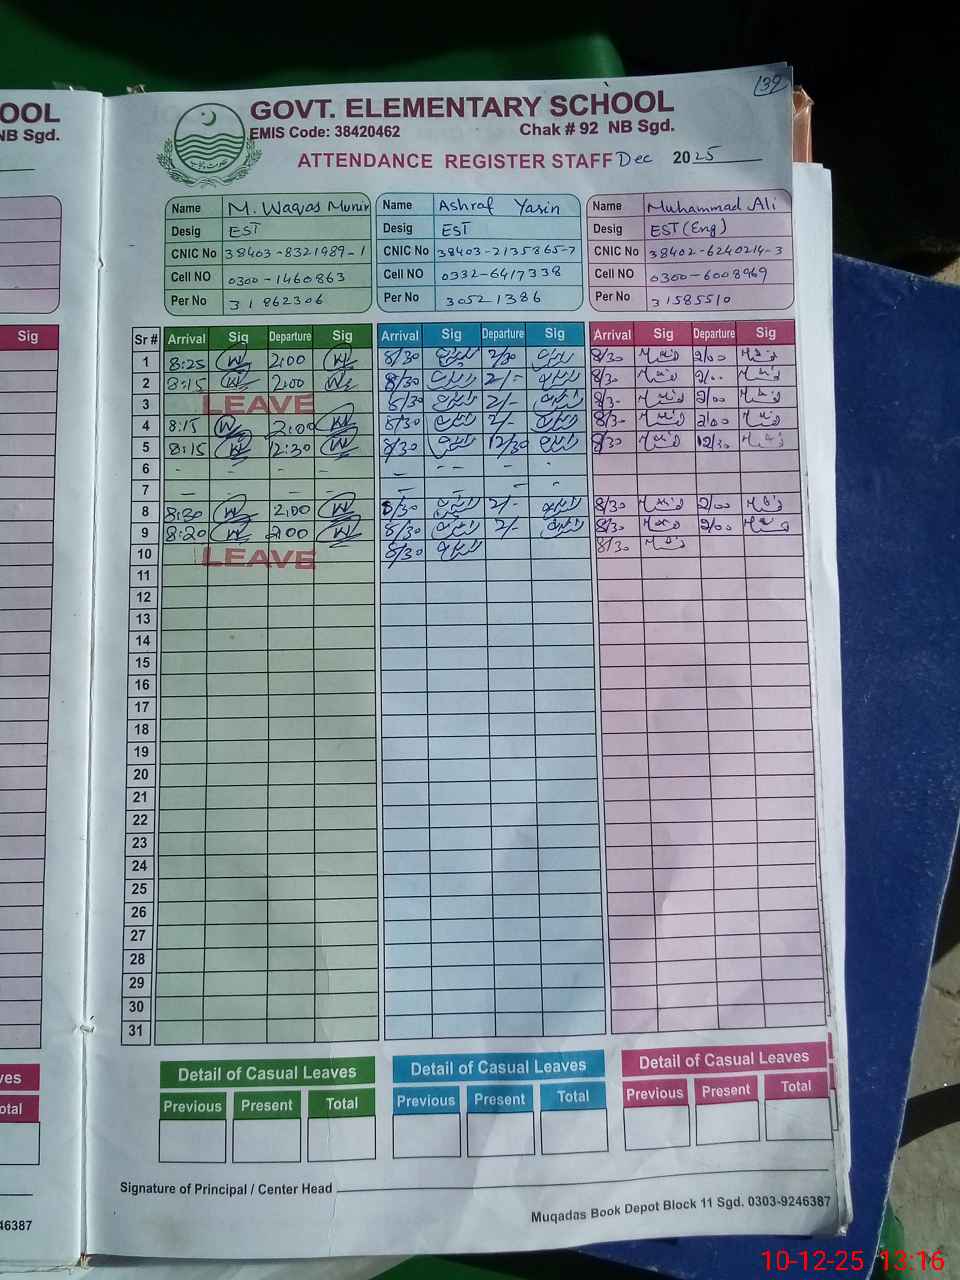 OOL
NB Sgd.
39
GOVT. ELEMENTARY SCHOOL
EMIS Code: 38420462 Chak # 92 NB Sgd.
ATTENDANCE REGISTER STAFF Dec 2025
Name M. Waqas Munir Name Ashraf Yasin Name Muhammad Ali
Desig EST Desig EST Desig EST (Eng)
CNIC No 38403-8321989-1 CNIC No 38403-2135865-7 CNIC No 38402-6240214-3
Cell NO 0300-1460863 Cell NO 0332-6417338 Cell NO 0300-6008969
Per No 31862306 Per No 30521386 Per No 31585510
Sig
Sr # Arrival Sig Departure Sig Arrival Sig Departure Sig Arrival Sig Departure Sig
1 8:25 2:00 8/30 2/30 8/30 2/00
2 8:15 2:00 8/30 2/- 8/30 2/00
3 LEAVE 8/30 2/- 8/30 2/00
4 8:15 2:00 8/30 2/- 8/30 2/00
5 8:15 12:30 8/30 12/30 8/30 12/30
6 - - - - - -- - -
7 - - - - - - -
8 8:30 2:00 8/30 2/- 8/30 2/00
9 8:20 2:00 8/30 2/- 8/30 2/00
10 LEAVE 8/30 8/30
11
12
13
14
15
16
17
18
19
20
21
22
23
24
25
26
27
28
29
30
31
ves
otal
Detail of Casual Leaves Detail of Casual Leaves Detail of Casual Leaves
Previous Present Total Previous Present Total Previous Present Total
Signature of Principal / Center Head
Muqadas Book Depot Block 11 Sgd. 0303-9246387
46387
10-12-25 13:16